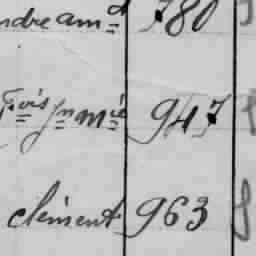 ndre amd 780
Fois Jn mie 947
clément 963